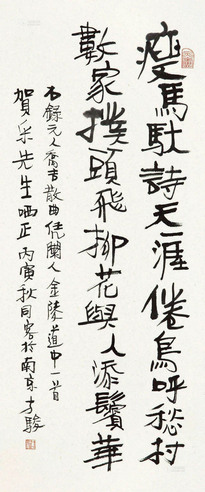 瘦馬馱詩天涯倦鳥呼愁村
數家撲頭飛柳花與人添鬢華
右錄元人喬吉散曲凭闌人金陵道中一首
賀年先生哂正丙寅秋同客於南京才駿